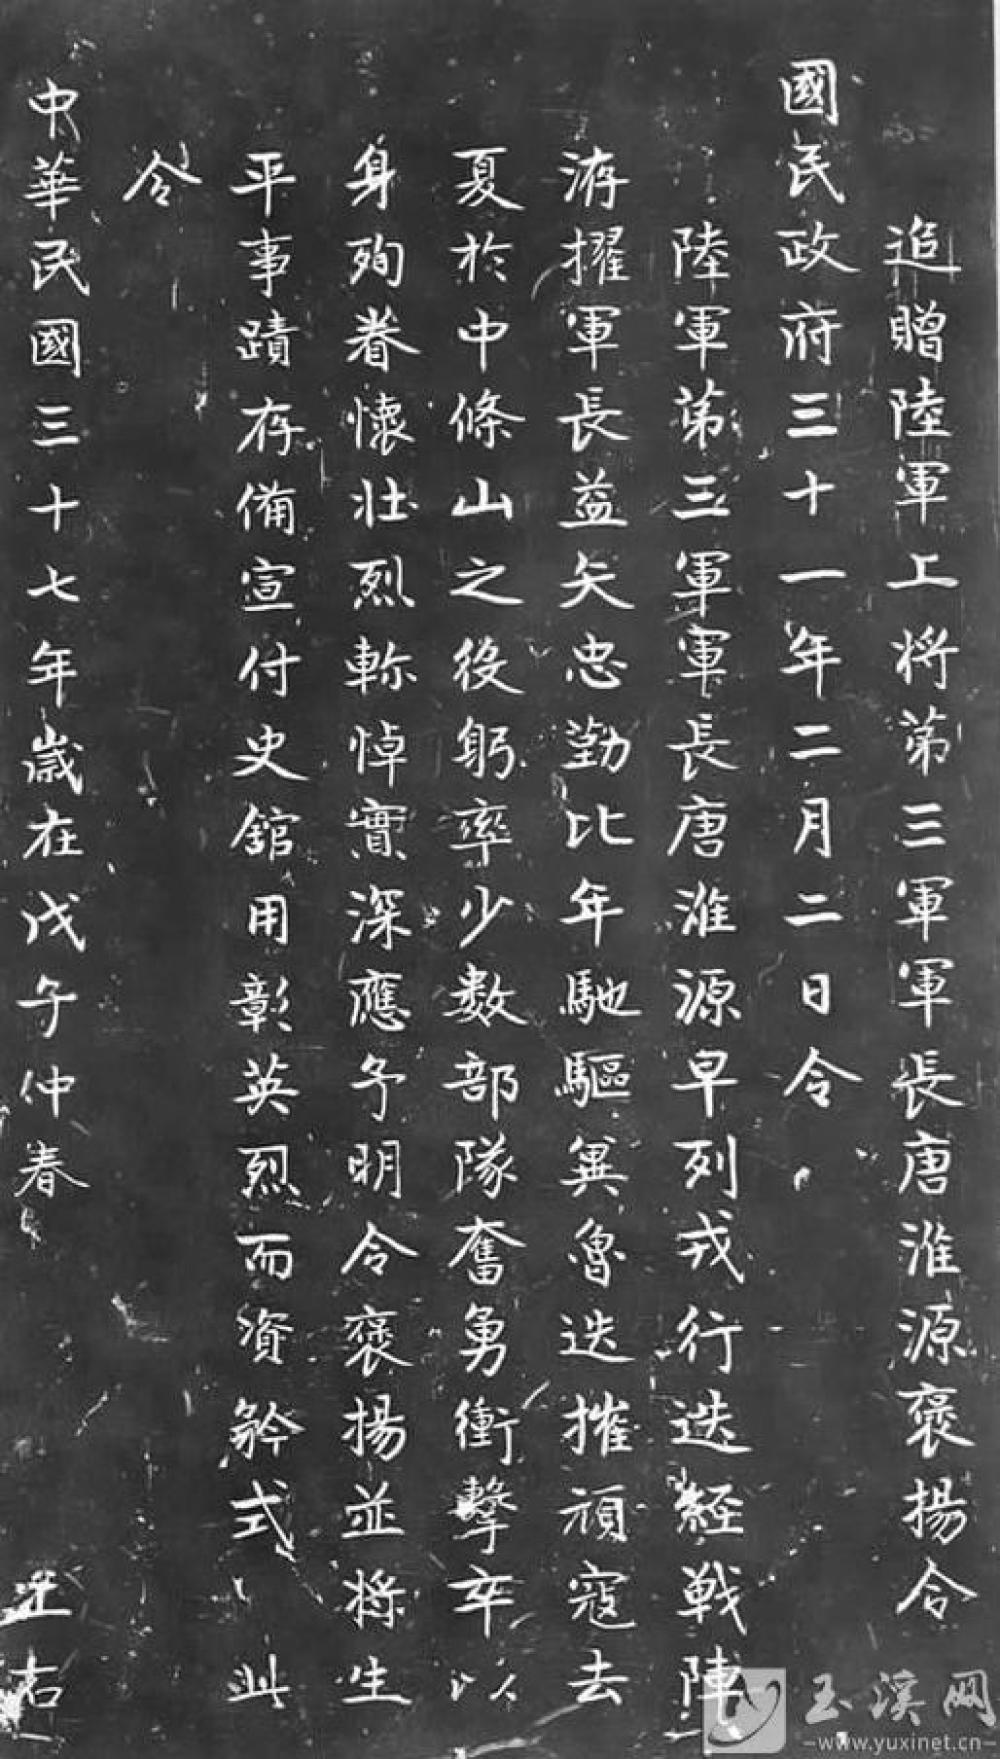 追贈陸軍上將第三軍軍長唐淮源褒揚令
國民政府三十一年二月二日令
陸軍第三軍軍長唐淮源早列戎行迭經戰陣
洊擢軍長益矢忠勤比年馳驅冀魯迭摧頑寇去
夏於中條山之役躬率少數部隊奮勇衝擊卒以
身殉眷懷壯烈軫悼實深應予明令褒揚並將生
平事蹟存備宣付史館用彰英烈而資矜式此
令
中華民國三十七年歲在戊子仲春 右
玉溪网
—www.yuxinet.cn—